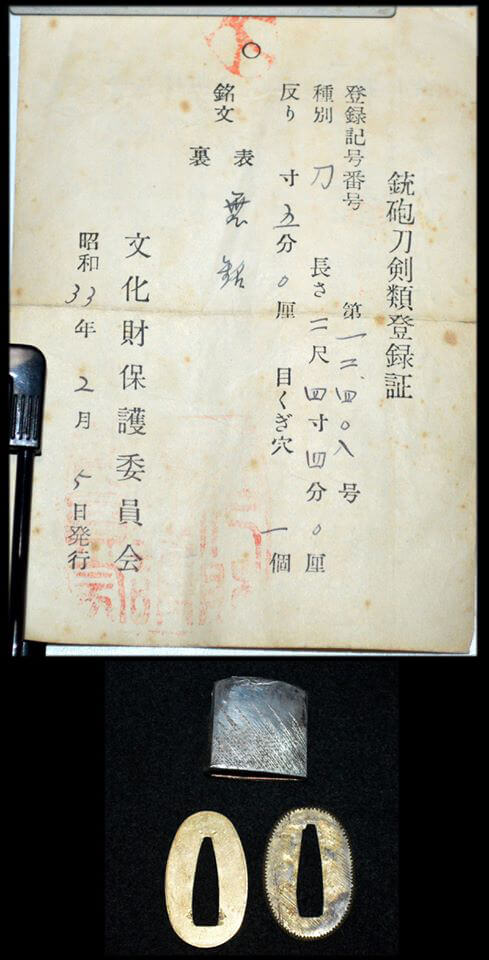 銃砲刀剣類登録証
登録記号番号 第一二、四〇八号
種別 刀 長さ 二尺四寸四分〇厘
反り 寸五分〇厘 目くぎ穴 一個
銘文 表 無銘
裏
文化財保護委員会
昭和33年2月5日発行